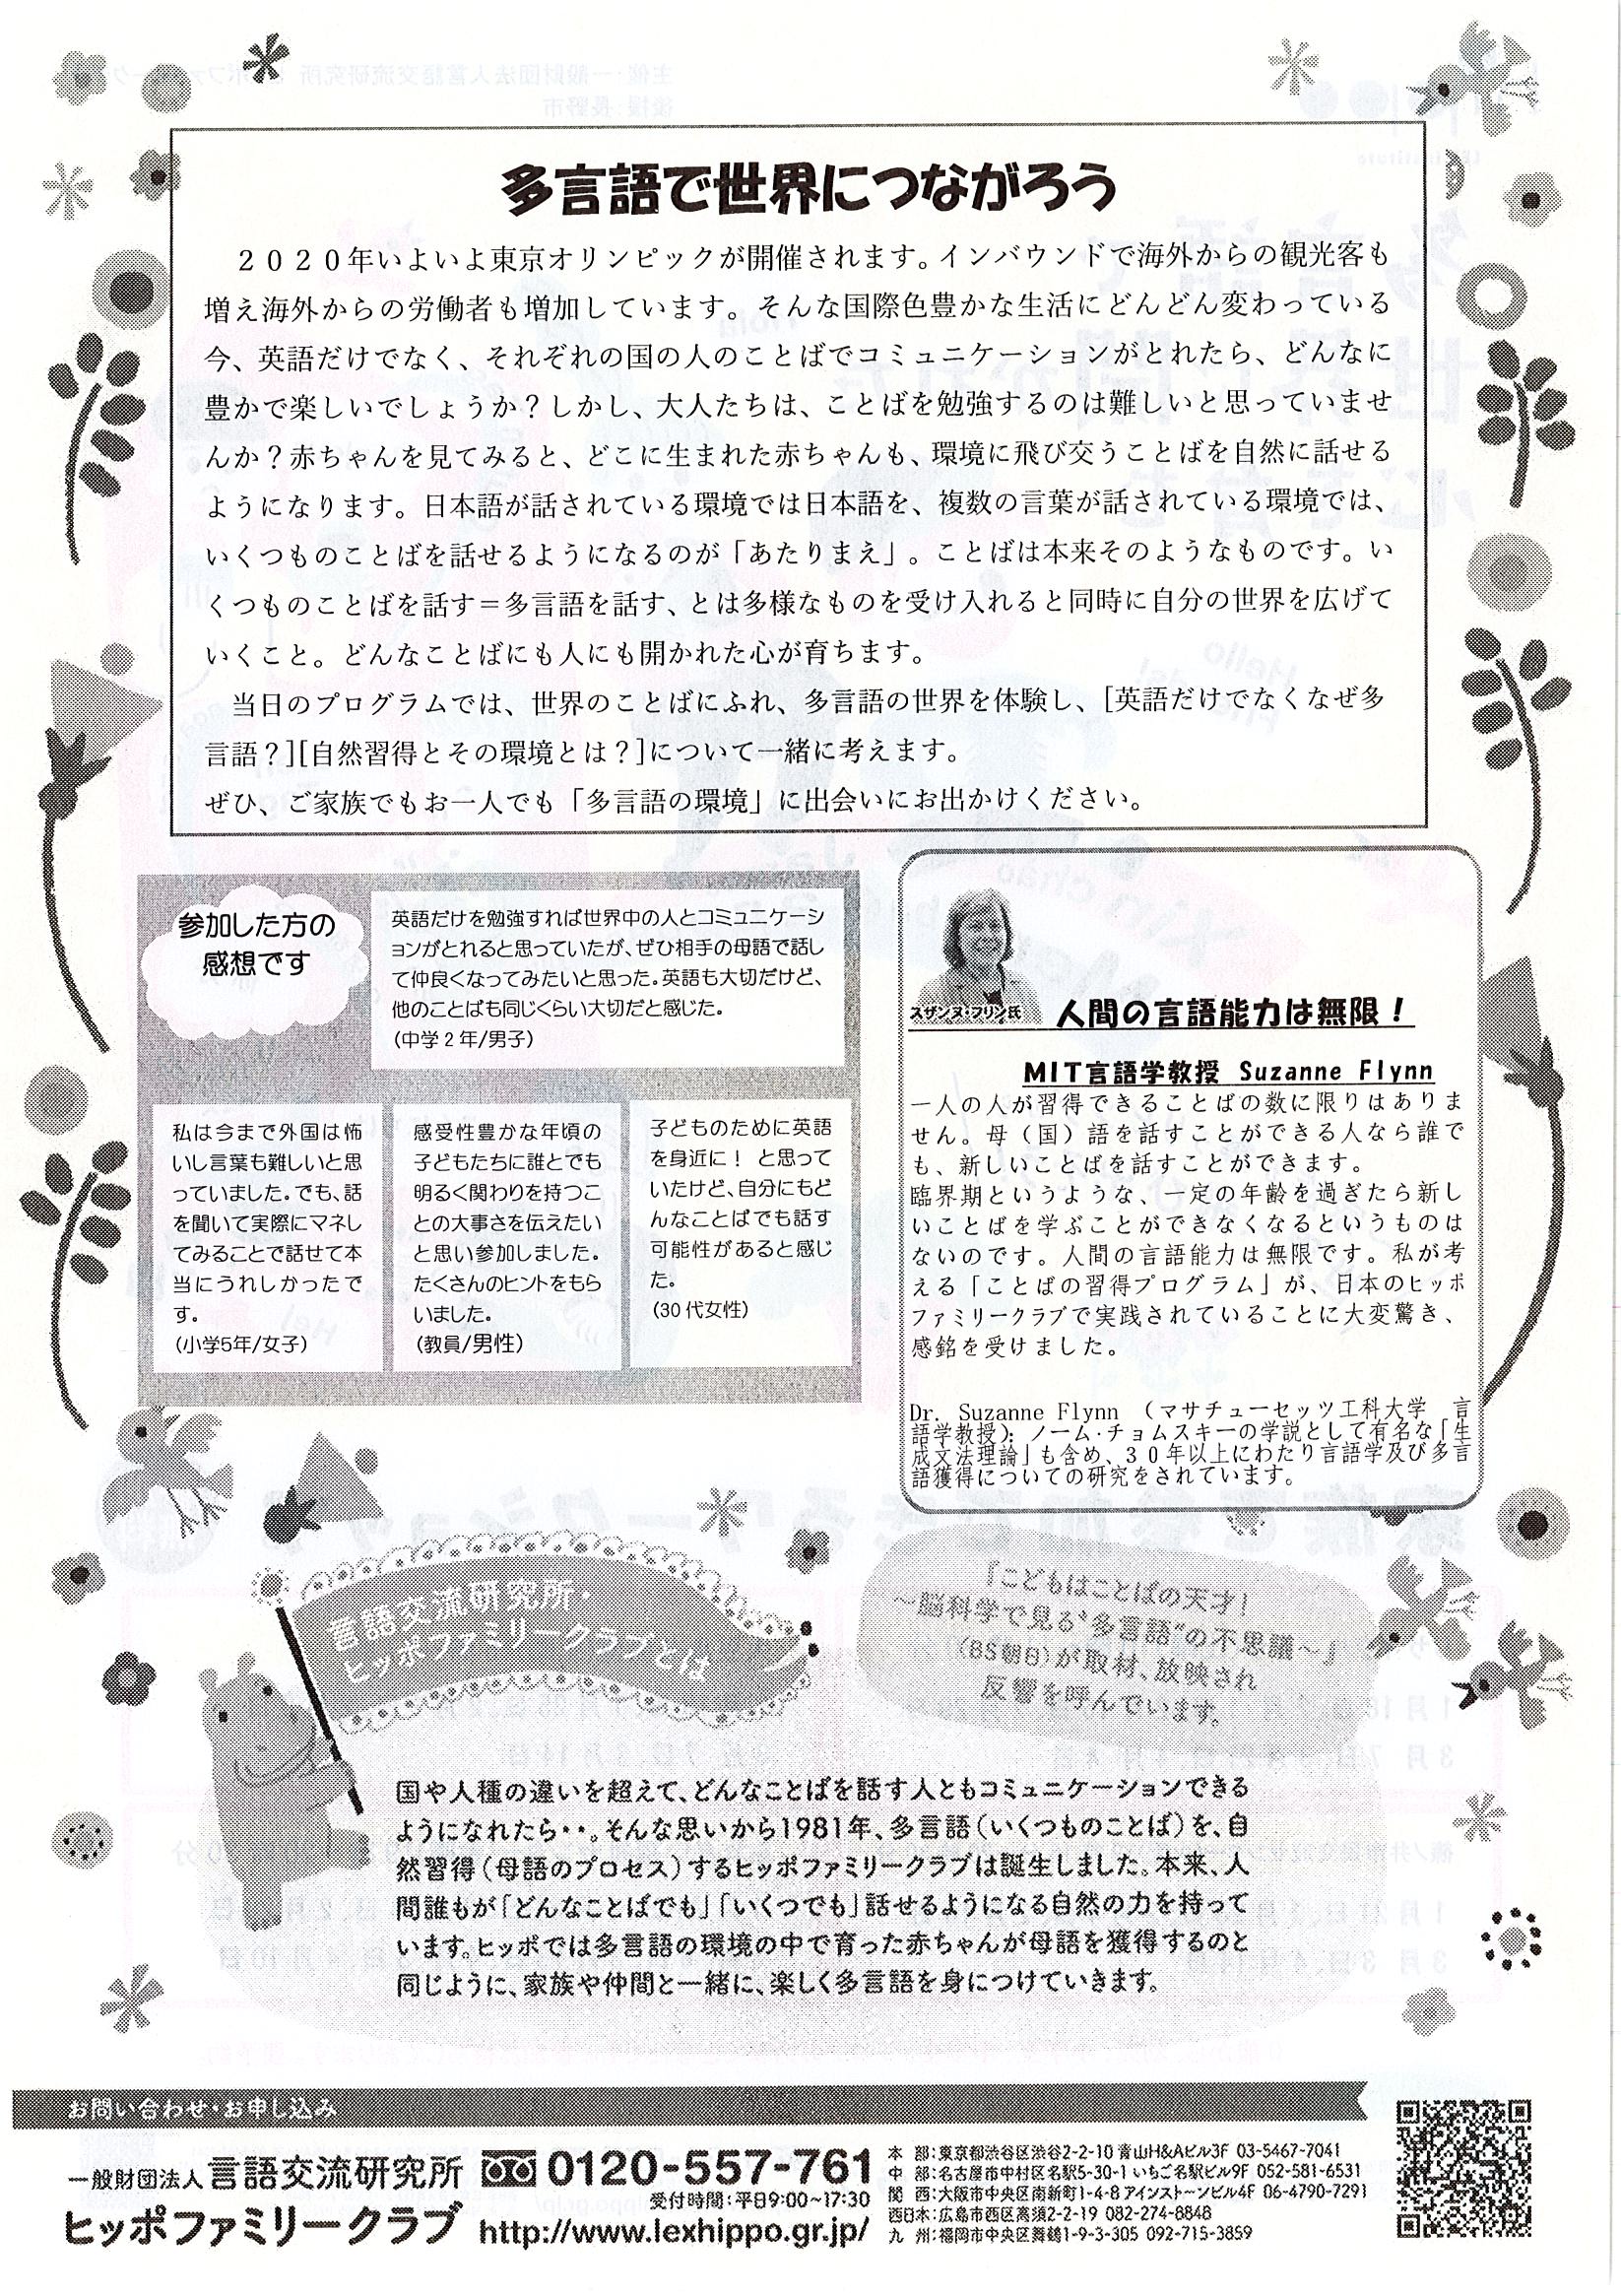 多言語で世界につながろう
２０２０年いよいよ東京オリンピックが開催されます。インバウンドで海外からの観光客も
増え海外からの労働者も増加しています。そんな国際色豊かな生活にどんどん変わっている
今、英語だけでなく、それぞれの国の人のことばでコミュニケーションがとれたら、どんなに
豊かで楽しいでしょうか？しかし、大人たちは、ことばを勉強するのは難しいと思っていませ
んか？赤ちゃんを見てみると、どこに生まれた赤ちゃんも、環境に飛び交うことばを自然に話せる
ようになります。日本語が話されている環境では日本語を、複数の言葉が話されている環境では、
いくつものことばを話せるようになるのが「あたりまえ」。ことばは本来そのようなものです。い
くつものことばを話す＝多言語を話す、とは多様なものを受け入れると同時に自分の世界を広げて
いくこと。どんなことばにも人にも開かれた心が育ちます。
当日のプログラムでは、世界のことばにふれ、多言語の世界を体験し、[英語だけでなくなぜ多
言語？][自然習得とその環境とは？]について一緒に考えます。
ぜひ、ご家族でもお一人でも「多言語の環境」に出会いにお出かけください。
参加した方の
感想です
英語だけを勉強すれば世界中の人とコミュニケーシ
ョンがとれると思っていたが、ぜひ相手の母語で話し
て仲良くなってみたいと思った。英語も大切だけど、
他のことばも同じくらい大切だと感じた。
(中学２年/男子)
私は今まで外国は怖
いし言葉も難しいと思
っていました。でも、話
を聞いて実際にマネし
てみることで話せて本
当にうれしかったで
す。
(小学5年/女子)
感受性豊かな年頃の
子どもたちに誰とでも
明るく関わりを持つこ
との大事さを伝えたい
と思い参加しました。
たくさんのヒントをもら
いました。
(教員/男性)
子どものために英語
を身近に！ と思って
いたけど、自分にもど
んなことばでも話す
可能性があると感じ
た。
(30代女性)
スザンヌ・フリン氏
人間の言語能力は無限！
MIT言語学教授 Suzanne Flynn
一人の人が習得できることばの数に限りはありま
せん。母（国）語を話すことができる人なら誰で
も、新しいことばを話すことができます。
臨界期というような、一定の年齢を過ぎたら新し
いことばを学ぶことができなくなるというものは
ないのです。人間の言語能力は無限です。私が考
える「ことばの習得プログラム」が、日本のヒッポ
ファミリークラブで実践されていることに大変驚き、
感銘を受けました。
Dr. Suzanne Flynn （マサチューセッツ工科大学 言
語学教授）：ノーム・チョムスキーの学説として有名な「生
成文法理論」も含め、３０年以上にわたり言語学及び多言
語獲得についての研究をされています。
言語交流研究所・
ヒッポファミリークラブとは
「こどもはことばの天才！
～脳科学で見る“多言語”の不思議～」
（BS朝日）が取材、放映され
反響を呼んでいます。
国や人種の違いを超えて、どんなことばを話す人ともコミュニケーションできる
ようになれたら・・。そんな思いから1981年、多言語（いくつものことば）を、自
然習得（母語のプロセス）するヒッポファミリークラブは誕生しました。本来、人
間誰もが「どんなことばでも」「いくつでも」話せるようになる自然の力を持って
います。ヒッポでは多言語の環境の中で育った赤ちゃんが母語を獲得するのと
同じように、家族や仲間と一緒に、楽しく多言語を身につけていきます。
お問い合わせ・お申し込み
一般財団法人 言語交流研究所
ヒッポファミリークラブ
0120-557-761
受付時間：平日9:00～17:30
http://www.lexhippo.gr.jp/
本 部：東京都渋谷区渋谷2-2-10 青山H&Aビル3F 03-5467-7041
中 部：名古屋市中村区名駅5-30-1 いちご名駅ビル9F 052-581-6531
関 西：大阪市中央区南新町1-4-8 アインストーンビル4F 06-4790-7291
西日本：広島市西区高須2-2-19 082-274-8848
九 州：福岡市中央区舞鶴1-9-3-305 092-715-3859